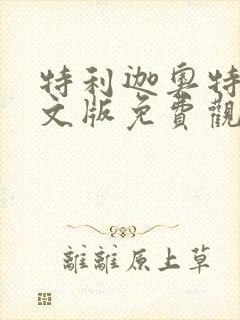 特利迦奧特
文版免費觀
離離原上草